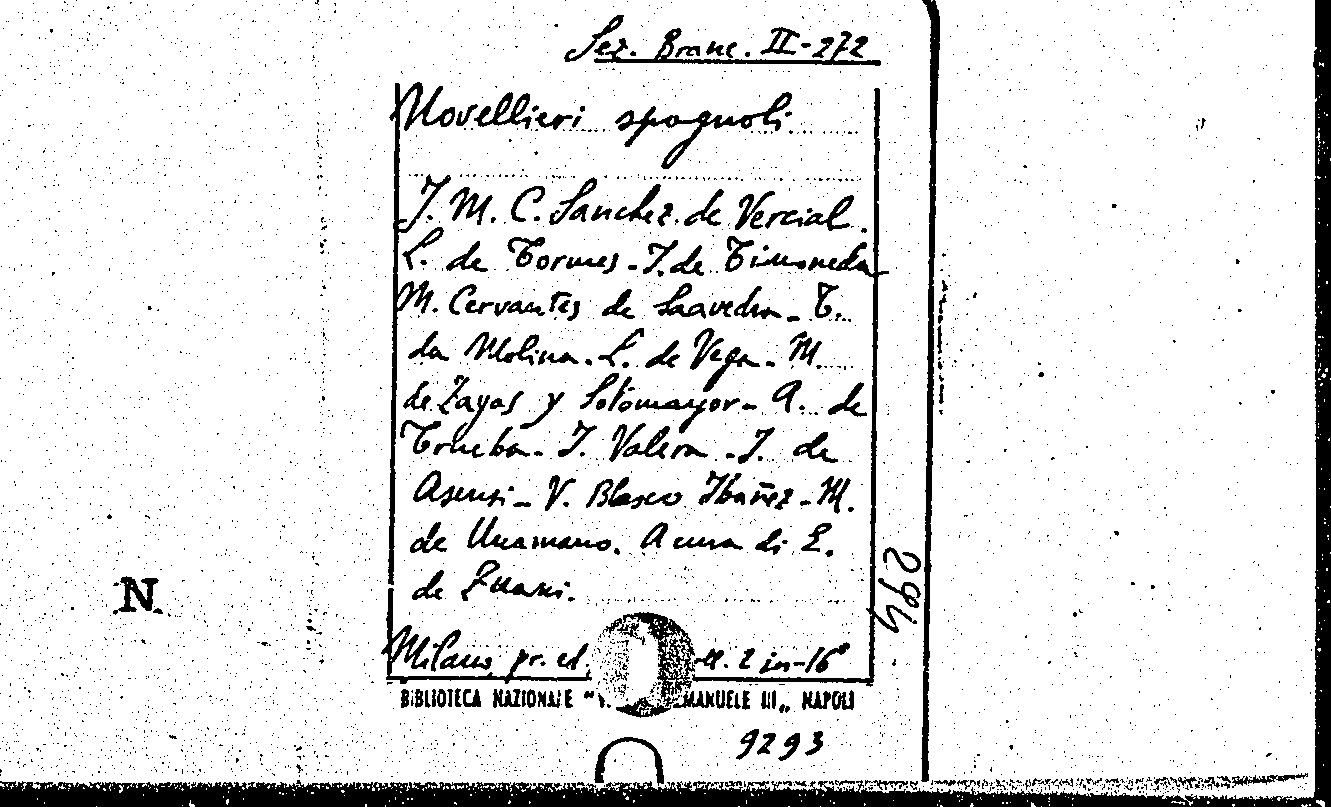 Sez. Branc. II-272
Novellieri spagnoli
J. M. C. Sanchez. de Vercial.
L. de Tormes - J. de Timoneda
M. Cervantes de Saavedra - T.
da Molina - L. de Vega - M.
de Zayas y Sotomayor - A. de
Trueba - J. Valera - J. de
Asensi - V. Blasco Ibañez - M.
de Unamano. A cura di E.
de Zuani.
Milano, pr. ed. 2 in-16°
BIBLIOTECA NAZIONALE MANUELE III„ NAPOLI
9293
294
N